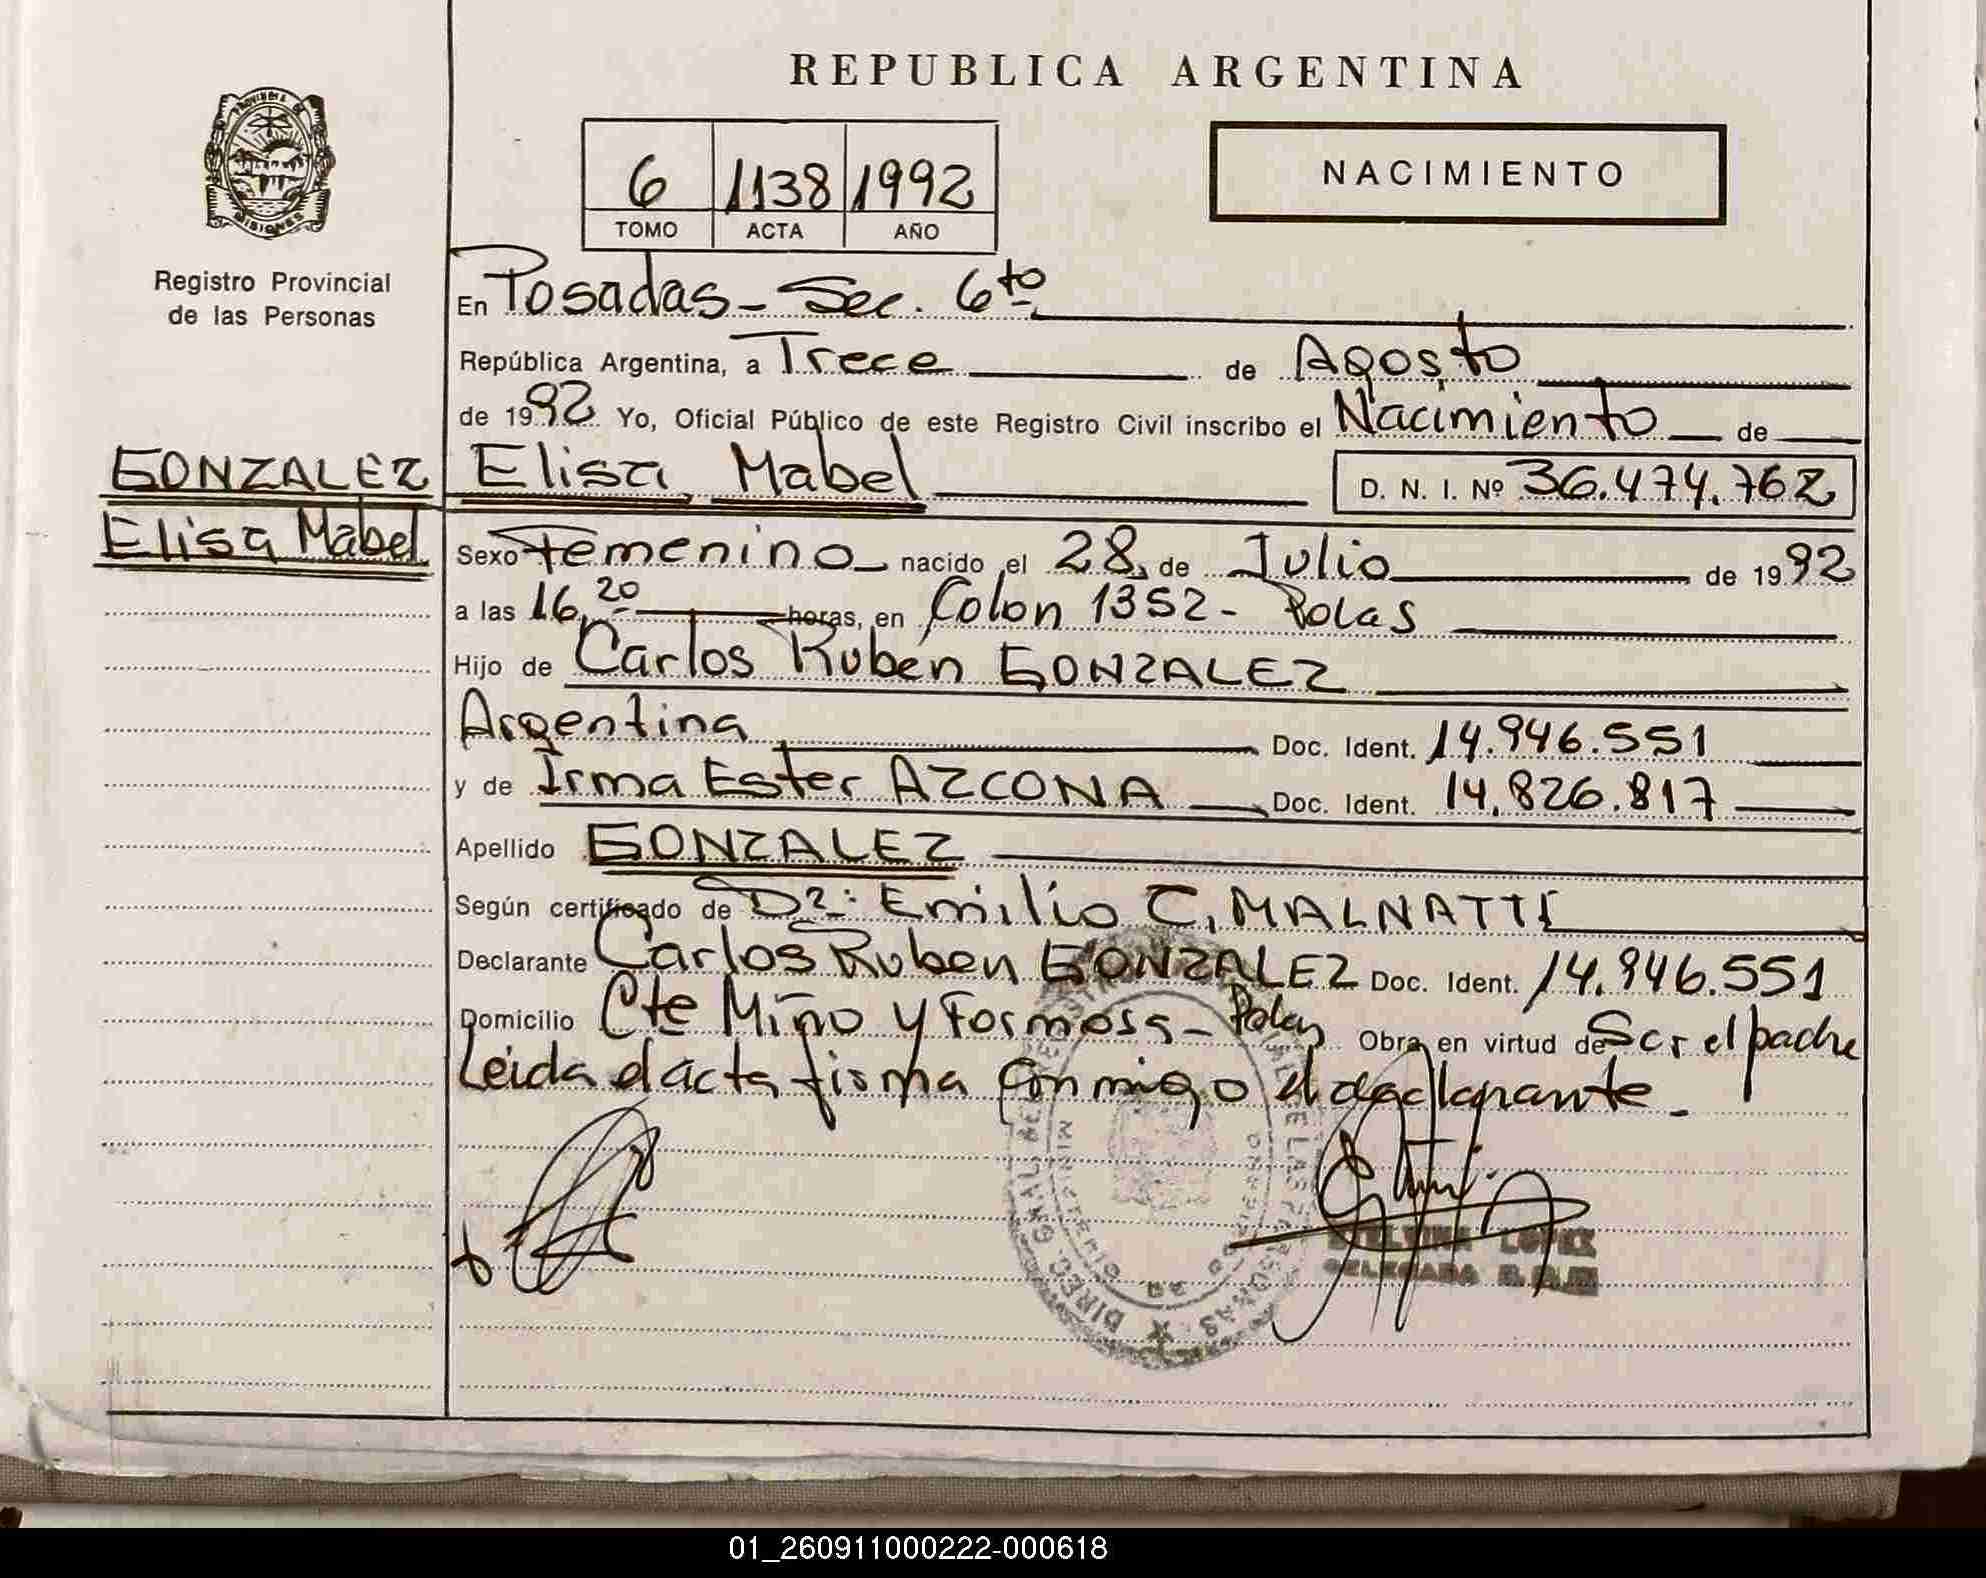 REPUBLICA ARGENTINA
PROVINCIA DE
MISIONES
Registro Provincial
de las Personas
NACIMIENTO
6 1138 1992
TOMO ACTA AÑO
En Posadas - Sec. 6to
República Argentina, a Trece de Agosto
de 1992 Yo, Oficial Público de este Registro Civil inscribo el Nacimiento de
GONZALEZ Elisa Mabel D. N. I. Nº 36.474.762
Elisa Mabel
Sexo Femenino nacido el 28 de Julio de 1992
a las 16,20 horas, en Colon 1352 - Pdas
Hijo de Carlos Ruben GONZALEZ
Argentina Doc. Ident. 14.946.551
y de Irma Ester AZCONA Doc. Ident. 14.826.817
Apellido GONZALEZ
Según certificado de Dr: Emilio C. MALNATTI
Declarante Carlos Ruben GONZALEZ Doc. Ident. 14.946.551
Domicilio Cte Miño y Formosa - Pdas Obra en virtud de Ser el padre
Leida el acta firma conmigo el declarante.
LOPEZ
DELEGADA
01_260911000222-000618